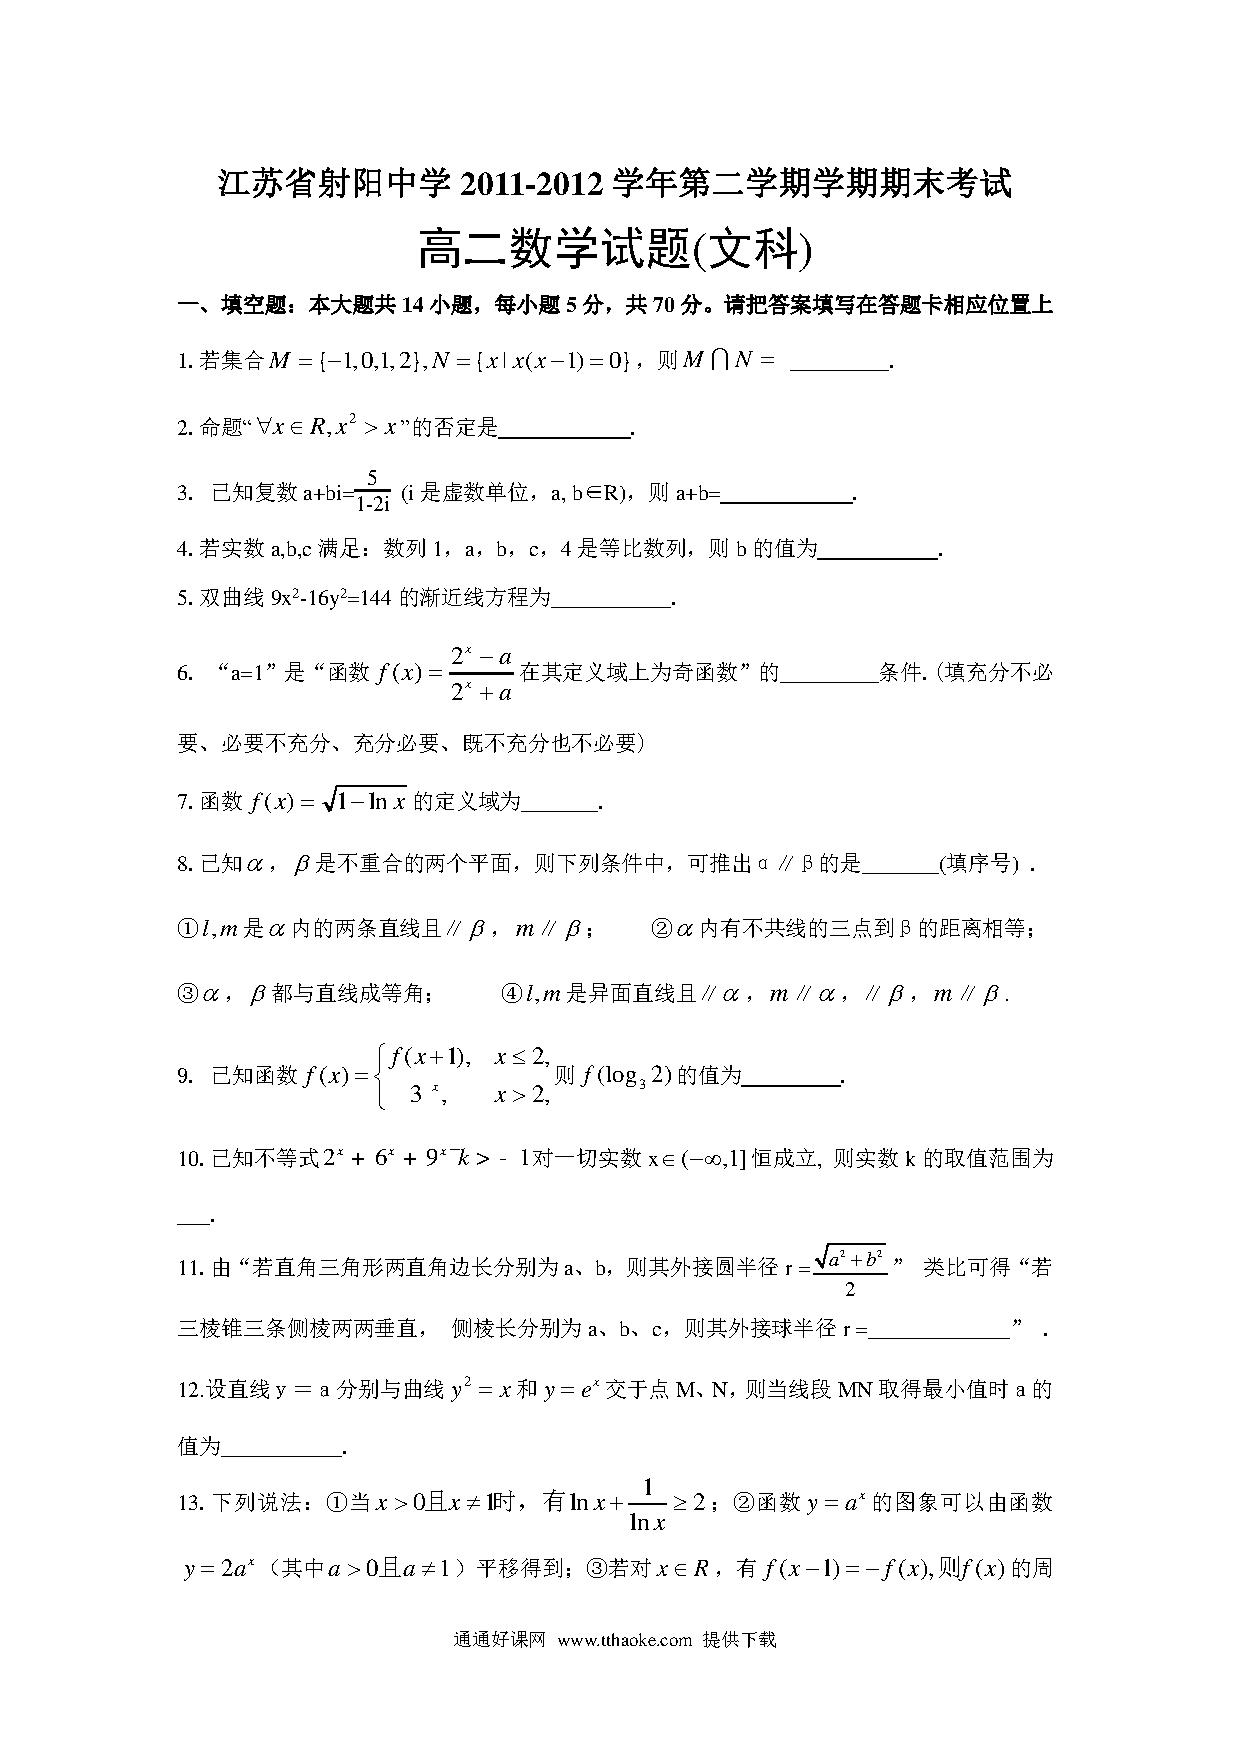 江苏省射阳中学 2011-2012 学年第二学期学期期末考试
高二数学试题(文科)
一、填空题：本大题共 14 小题，每小题 5 分，共 70 分。请把答案填写在答题卡相应位置上
1. 若集合 M ={−1,0,1,2}, N ={x | x(x−1)=0}，则 M ⋂ N = _________.
2. 命题“∀x∈R, x² > x”的否定是____________.
3. 已知复数 a+bi=5/(1-2i) (i 是虚数单位，a, b∈R)，则 a+b=____________.
4. 若实数 a,b,c 满足：数列 1，a，b，c，4 是等比数列，则 b 的值为___________.
5. 双曲线 9x²-16y²=144 的渐近线方程为___________.
6. “a=1”是“函数 f(x)=(2ˣ−a)/(2ˣ+a) 在其定义域上为奇函数”的_________条件. (填充分不必
要、必要不充分、充分必要、既不充分也不必要)
7. 函数 f(x)= √(1−ln x) 的定义域为_______.
8. 已知α，β是不重合的两个平面，则下列条件中，可推出α∥β的是_______(填序号)．
①l,m是α内的两条直线且∥β，m∥β； ②α内有不共线的三点到β的距离相等；
③α，β都与直线成等角； ④l,m是异面直线且∥α，m∥α，∥β，m∥β.
9. 已知函数 f(x)={f(x+1), x≤2, 3ˣ, x>2, 则 f(log₃2)的值为_________.
10. 已知不等式2ˣ + 6ˣ + 9ˣ⁻k > - 1对一切实数 x∈(−∞,1]恒成立, 则实数 k 的取值范围为
___.
11. 由“若直角三角形两直角边长分别为 a、b，则其外接圆半径 r =√(a²+b²)/2” 类比可得“若
三棱锥三条侧棱两两垂直， 侧棱长分别为 a、b、c，则其外接球半径 r =_____________” ．
12.设直线 y ＝ a 分别与曲线 y² = x 和 y = eˣ 交于点 M、N，则当线段 MN 取得最小值时 a 的
值为___________.
13. 下列说法：①当 x>0且x≠1时，有ln x+1/ln x≥2；②函数 y = aˣ 的图象可以由函数
y = 2aˣ（其中a>0且a≠1）平移得到；③若对 x∈R，有 f(x−1)=−f(x),则f(x)的周
通通好课网 www.tthaoke.com 提供下载